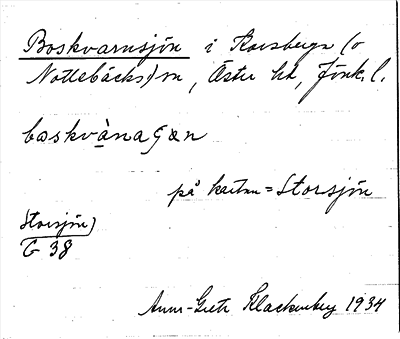 Boskvarnsjön i Korsberga (o
Nottebäcks) sn, Östra hd, Jönk. l.
boskvànaʃɶn
på kartan = Storsjön
Storsjön)
G 38
Ann-Gret Klackenberg 1934